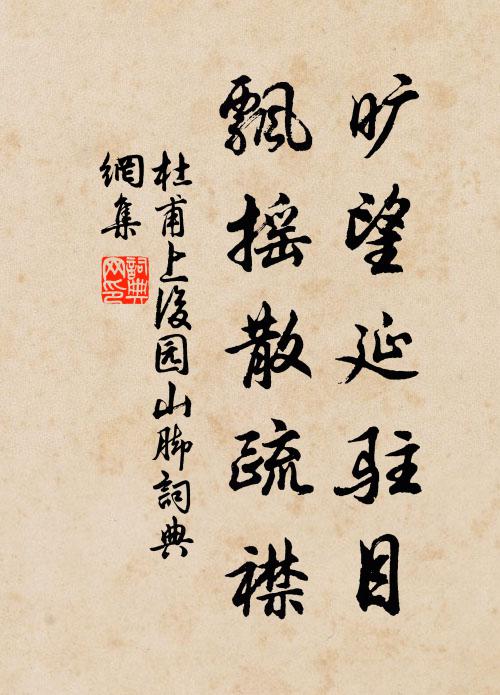 旷望延驻目
飘摇散疏襟
杜甫上後园山脚詞典
網集
詞典
网印